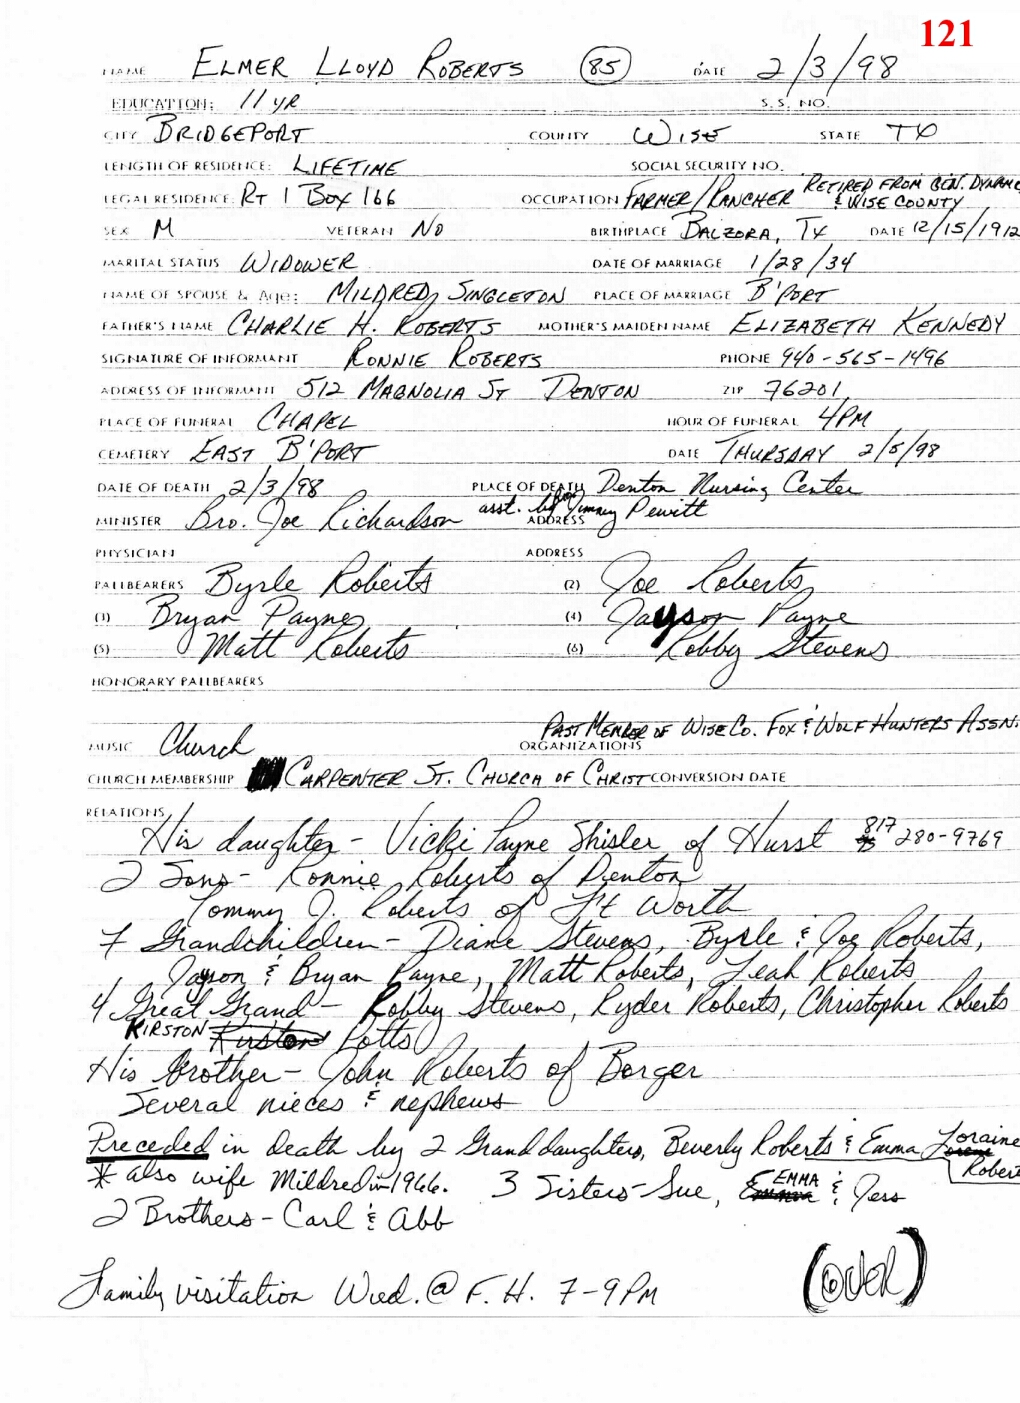 121
NAME ELMER LLOYD ROBERTS 85 DATE 2/3/98
EDUCATION: 11 YR S.S. NO.
CITY BRIDGEPORT COUNTY WISE STATE TX
LENGTH OF RESIDENCE: LIFETIME SOCIAL SECURITY NO.
LEGAL RESIDENCE: RT 1 BOX 166 OCCUPATION FARMER/RANCHER RETIRED FROM GEN. DYNAMIC
& WISE COUNTY
SEX M VETERAN NO BIRTHPLACE BALZORA, TX DATE 12/15/1912
MARITAL STATUS WIDOWER DATE OF MARRIAGE 1/28/34
NAME OF SPOUSE & Age: MILDRED SINGLETON PLACE OF MARRIAGE B'PORT
FATHER'S NAME CHARLIE H. ROBERTS MOTHER'S MAIDEN NAME ELIZABETH KENNEDY
SIGNATURE OF INFORMANT RONNIE ROBERTS PHONE 940-565-1496
ADDRESS OF INFORMANT 512 MAGNOLIA ST DENTON ZIP 76201
PLACE OF FUNERAL CHAPEL HOUR OF FUNERAL 4PM
CEMETERY EAST B'PORT DATE THURSDAY 2/5/98
DATE OF DEATH 2/3/98 PLACE OF DEATH Denton Nursing Center
MINISTER Bro. Joe Richardson asst. by Jimmy Pewitt ADDRESS
PHYSICIAN ADDRESS
PALLBEARERS Byrle Roberts (2) Joe Roberts
(3) Bryan Payne (4) Jayson Payne
(5) Matt Roberts (6) Robby Stevens
HONORARY PALLBEARERS
PAST MEMBER OF WISE CO. FOX & WOLF HUNTERS ASSN.
MUSIC Church ORGANIZATIONS
CHURCH MEMBERSHIP CARPENTER ST. CHURCH OF CHRIST CONVERSION DATE
RELATIONS
His daughter - Vicki Payne Shisler of Hurst 817 280-9769
2 Sons - Ronnie Roberts of Denton
Tommy J. Roberts of Ft Worth
7 Grandchildren - Diane Stevens, Byrle & Joe Roberts,
Jayson & Bryan Payne, Matt Roberts, Leah Roberts
4 Great Grand - Robby Stevens, Ryder Roberts, Christopher Roberts
KIRSTON Kirston Potts
His brother - John Roberts of Borger
Several nieces & nephews
Preceded in death by 2 Granddaughters, Beverly Roberts & Emma Loraine
Robert
* also wife Mildred in 1966. 3 Sisters - Sue, EMMA & Jess
2 Brothers - Carl & Abb
(OVER)
Family visitation Wed. @ F. H. 7-9 PM